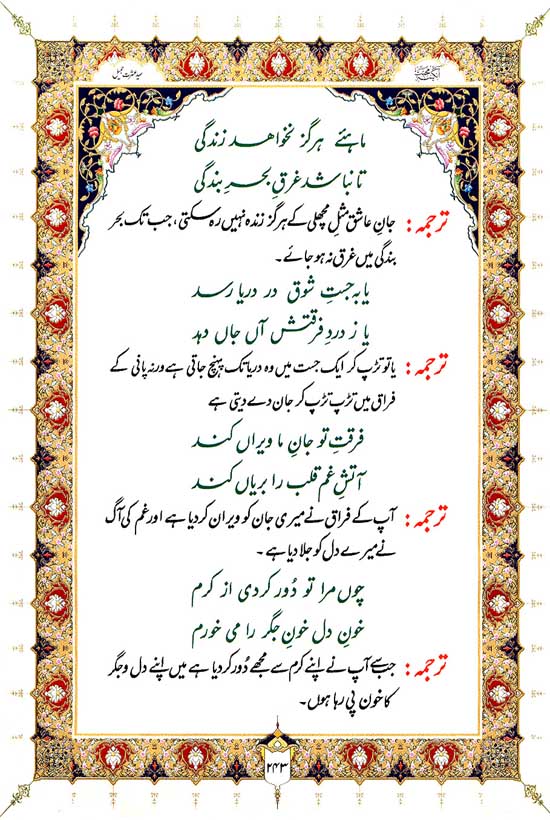 ماہئے ہرگز نخواهد زندگی
تا نباشد غرقِ بحرِ بندگی
ترجمہ: جانِ عاشق مثلِ مچھلی کے ہرگز زندہ نہیں رہ سکتی، جب تک بحرِ
بندگی میں غرق نہ ہو جائے۔
یا بہ جستِ شوق در دریا رسد
یا ز دردِ فرقتش آں جاں دہد
ترجمہ: یا تو تڑپ کر ایک جست میں وہ دریا تک پہنچ جاتی ہے ورنہ پانی کے
فراق میں تڑپ تڑپ کر جان دے دیتی ہے
فرقتِ تو جانِ ما ویراں کند
آتشِ غم قلب را بریاں کند
ترجمہ: آپ کے فراق نے میری جان کو ویران کر دیا ہے اور غم کی آگ
نے میرے دل کو جلا دیا ہے۔
چوں مرا تو دُور کردی از کرم
خونِ دل خونِ جگر را می خورم
ترجمہ: جب سے آپ نے اپنے کرم سے مجھے دُور کر دیا ہے میں اپنے دل و جگر
کا خون پی رہا ہوں۔
۲۴۳